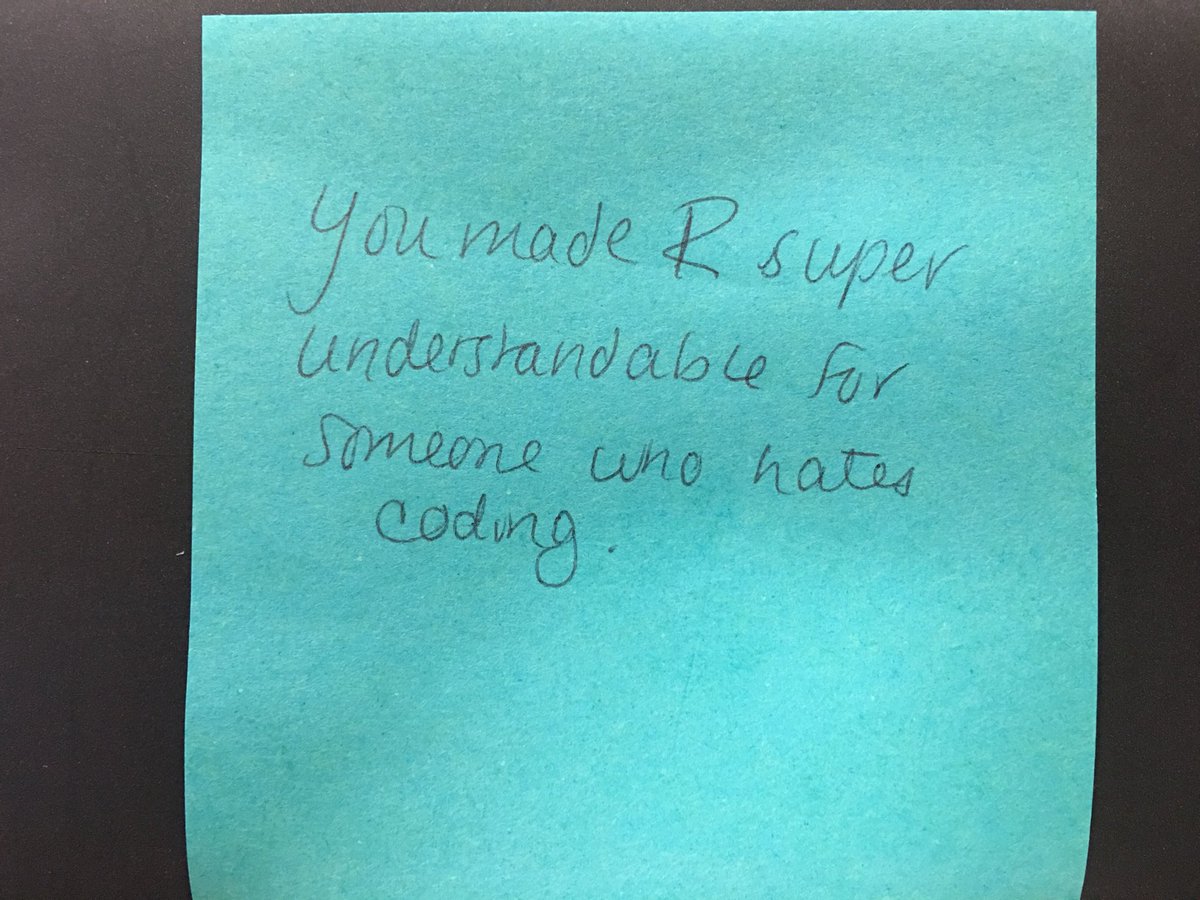 You made R super
understandable for
someone who hates
coding.